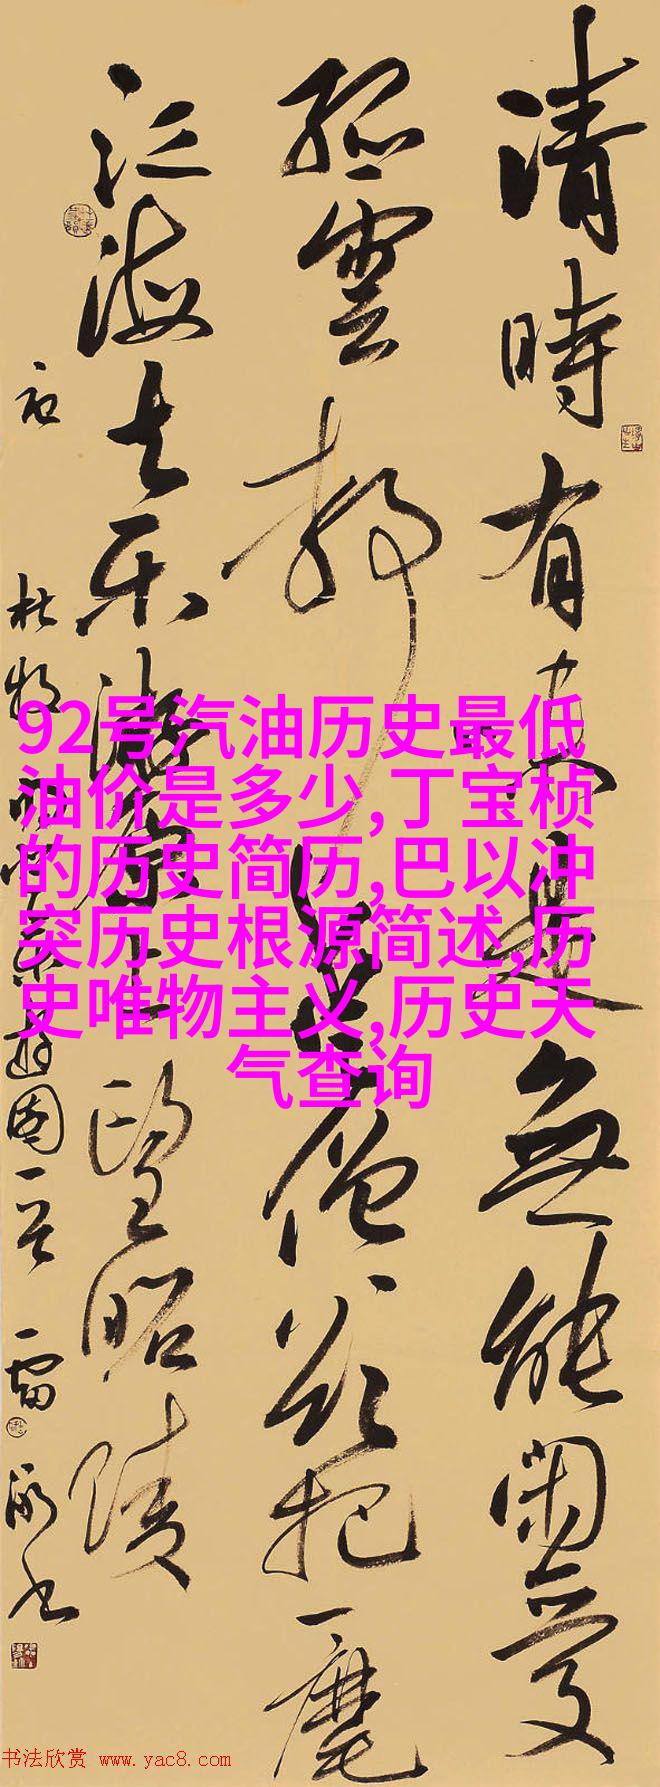 清時有味是無能閑愛
孤雲靜愛僧欲把一麾
江海去乐游原上望昭陵
杜牧
92号汽油历史最低
油价是多少,丁宝桢
的历史简历,巴以冲
突历史根源简述,历
史唯物主义,历史天
气查询
书法欣赏 www.yac8.com